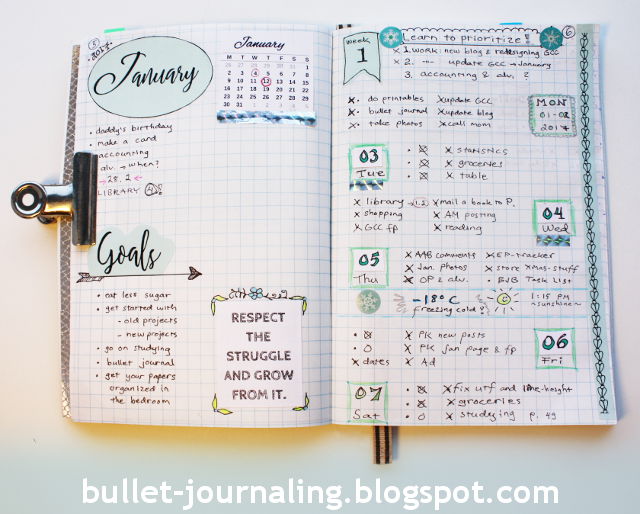 5
2017
January
January
M T W T F S S
2 3 4 5 6 7 8
9 10 11 12 13 14 15
16 17 18 19 20 21 22
23 24 25 26 27 28 29
30 31
• daddy's birthday
make a card
accounting
alv. → when?
→ 28. 2 ←
LIBRARY 4!
Goals
• eat less sugar
• get started with
- old projects
- new projects
• go on studying
• bullet journal
• get your papers
organized in
the bedroom
RESPECT
THE
STRUGGLE
AND GROW
FROM IT.
6
Week
1
Learn to prioritize!
x 1. WORK: new blog & redesigning GCC
x 2. -"- update GCC → January
3. accounting & alv. 2
MON
01-02
2017
x do printables x update GCC
x bullet journal x update blog
x take photos x call mom
03
Tue
x statistics
x groceries
x table
04
Wed
x library → 1.2 x mail a book to P.
x shopping x AM posting
x GCC fp x reading
05
Thu
x AAB comments x EP-tracker
x Jan. photos x store Xmas-stuff
x OP 2 alv. x BJB Task List
-18°C
freezing cold!
1:15 PM
~sunshine~
06
Fri
x PK new posts
x PK Jan page & fp
x dates x Ad
07
Sat
x fix utf and line-height
x groceries
x studying p. 49
bullet-journaling.blogspot.com